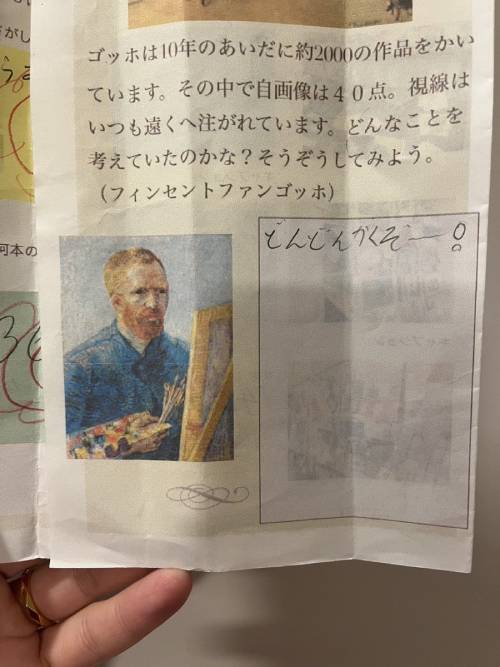 ゴッホは10年のあいだに約2000の作品をかい
ています。その中で自画像は４０点。視線は
いつも遠くへ注がれています。どんなことを
考えていたのかな？そうぞうしてみよう。
（フィンセントファンゴッホ）
どんどんかくぞー！
河本の